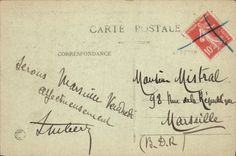 CARTE POSTALE
CORRESPONDANCE
Serons Marseille Vendredi
affectueusement
Monsieur Mistral
98 Rue de la République
Marseille
(B.D.R)
10